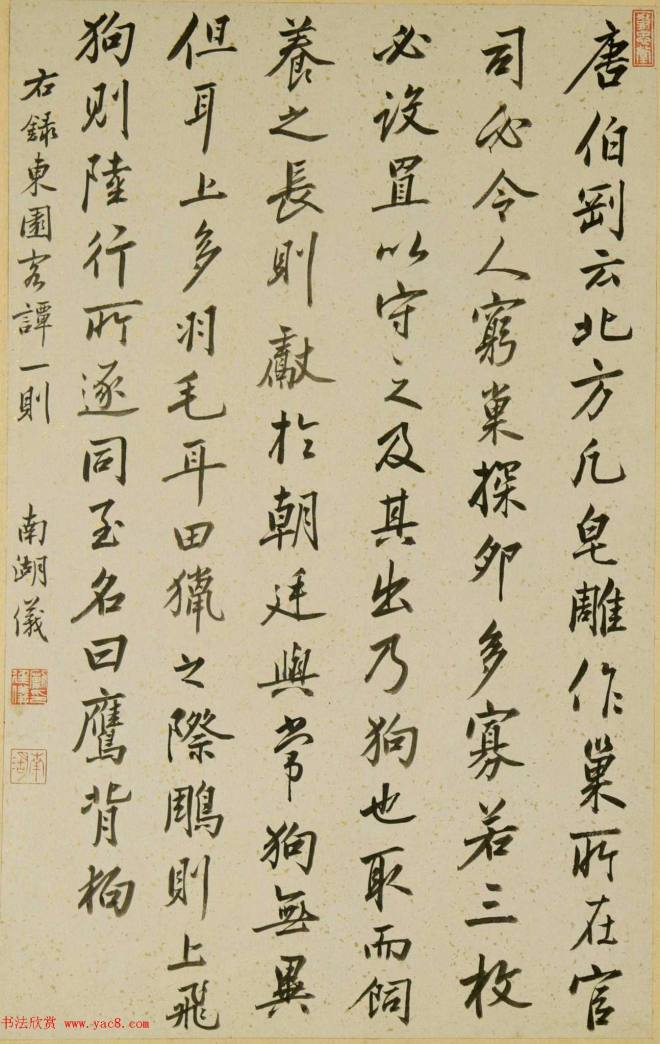 唐伯剛云北方凡皂雕作巢所在官
司必令人窮巢探卵多寡若三枚
必設置以守之及其出乃狗也取而飼
養之長則獻於朝廷與常狗無異
但耳上多羽毛耳田獵之際鵰則上飛
狗則陸行所逐同至名曰鷹背狗
右錄東園客譚一則
南湖儀
书法欣赏 www.yac8.com